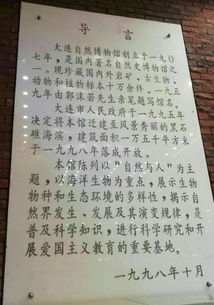 导言
大连自然博物馆创立于一九〇
七年，是国内著名自然史博物馆之
一。现珍藏国内外岩矿、古生物、
动物和植物标本十万余件。一九五
九年由郭沫若先生亲笔题写馆名。
大连市人民政府于一九九五年
决定将本馆迁建至风景秀丽的黑石
礁海滨，建筑面积一万五千平方米
于一九九八年落成开放。
本馆陈列以“自然与人”为主
题，以海洋生物为重点，展示生物
物种和生态环境的多样性，揭示自
然界发生、发展及其演变规律，是
普及科学知识，进行科学研究和开
展爱国主义教育的重要基地。
一九九八年十月